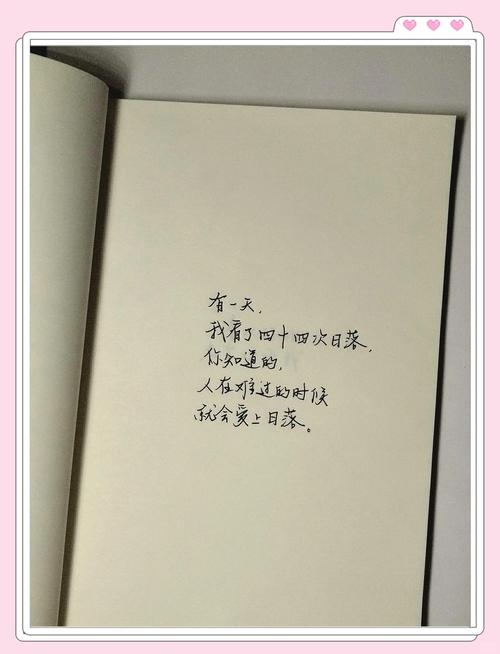 有一天,
我看了四十四次日落,
你知道的,
人在难过的时候
就会爱上日落。